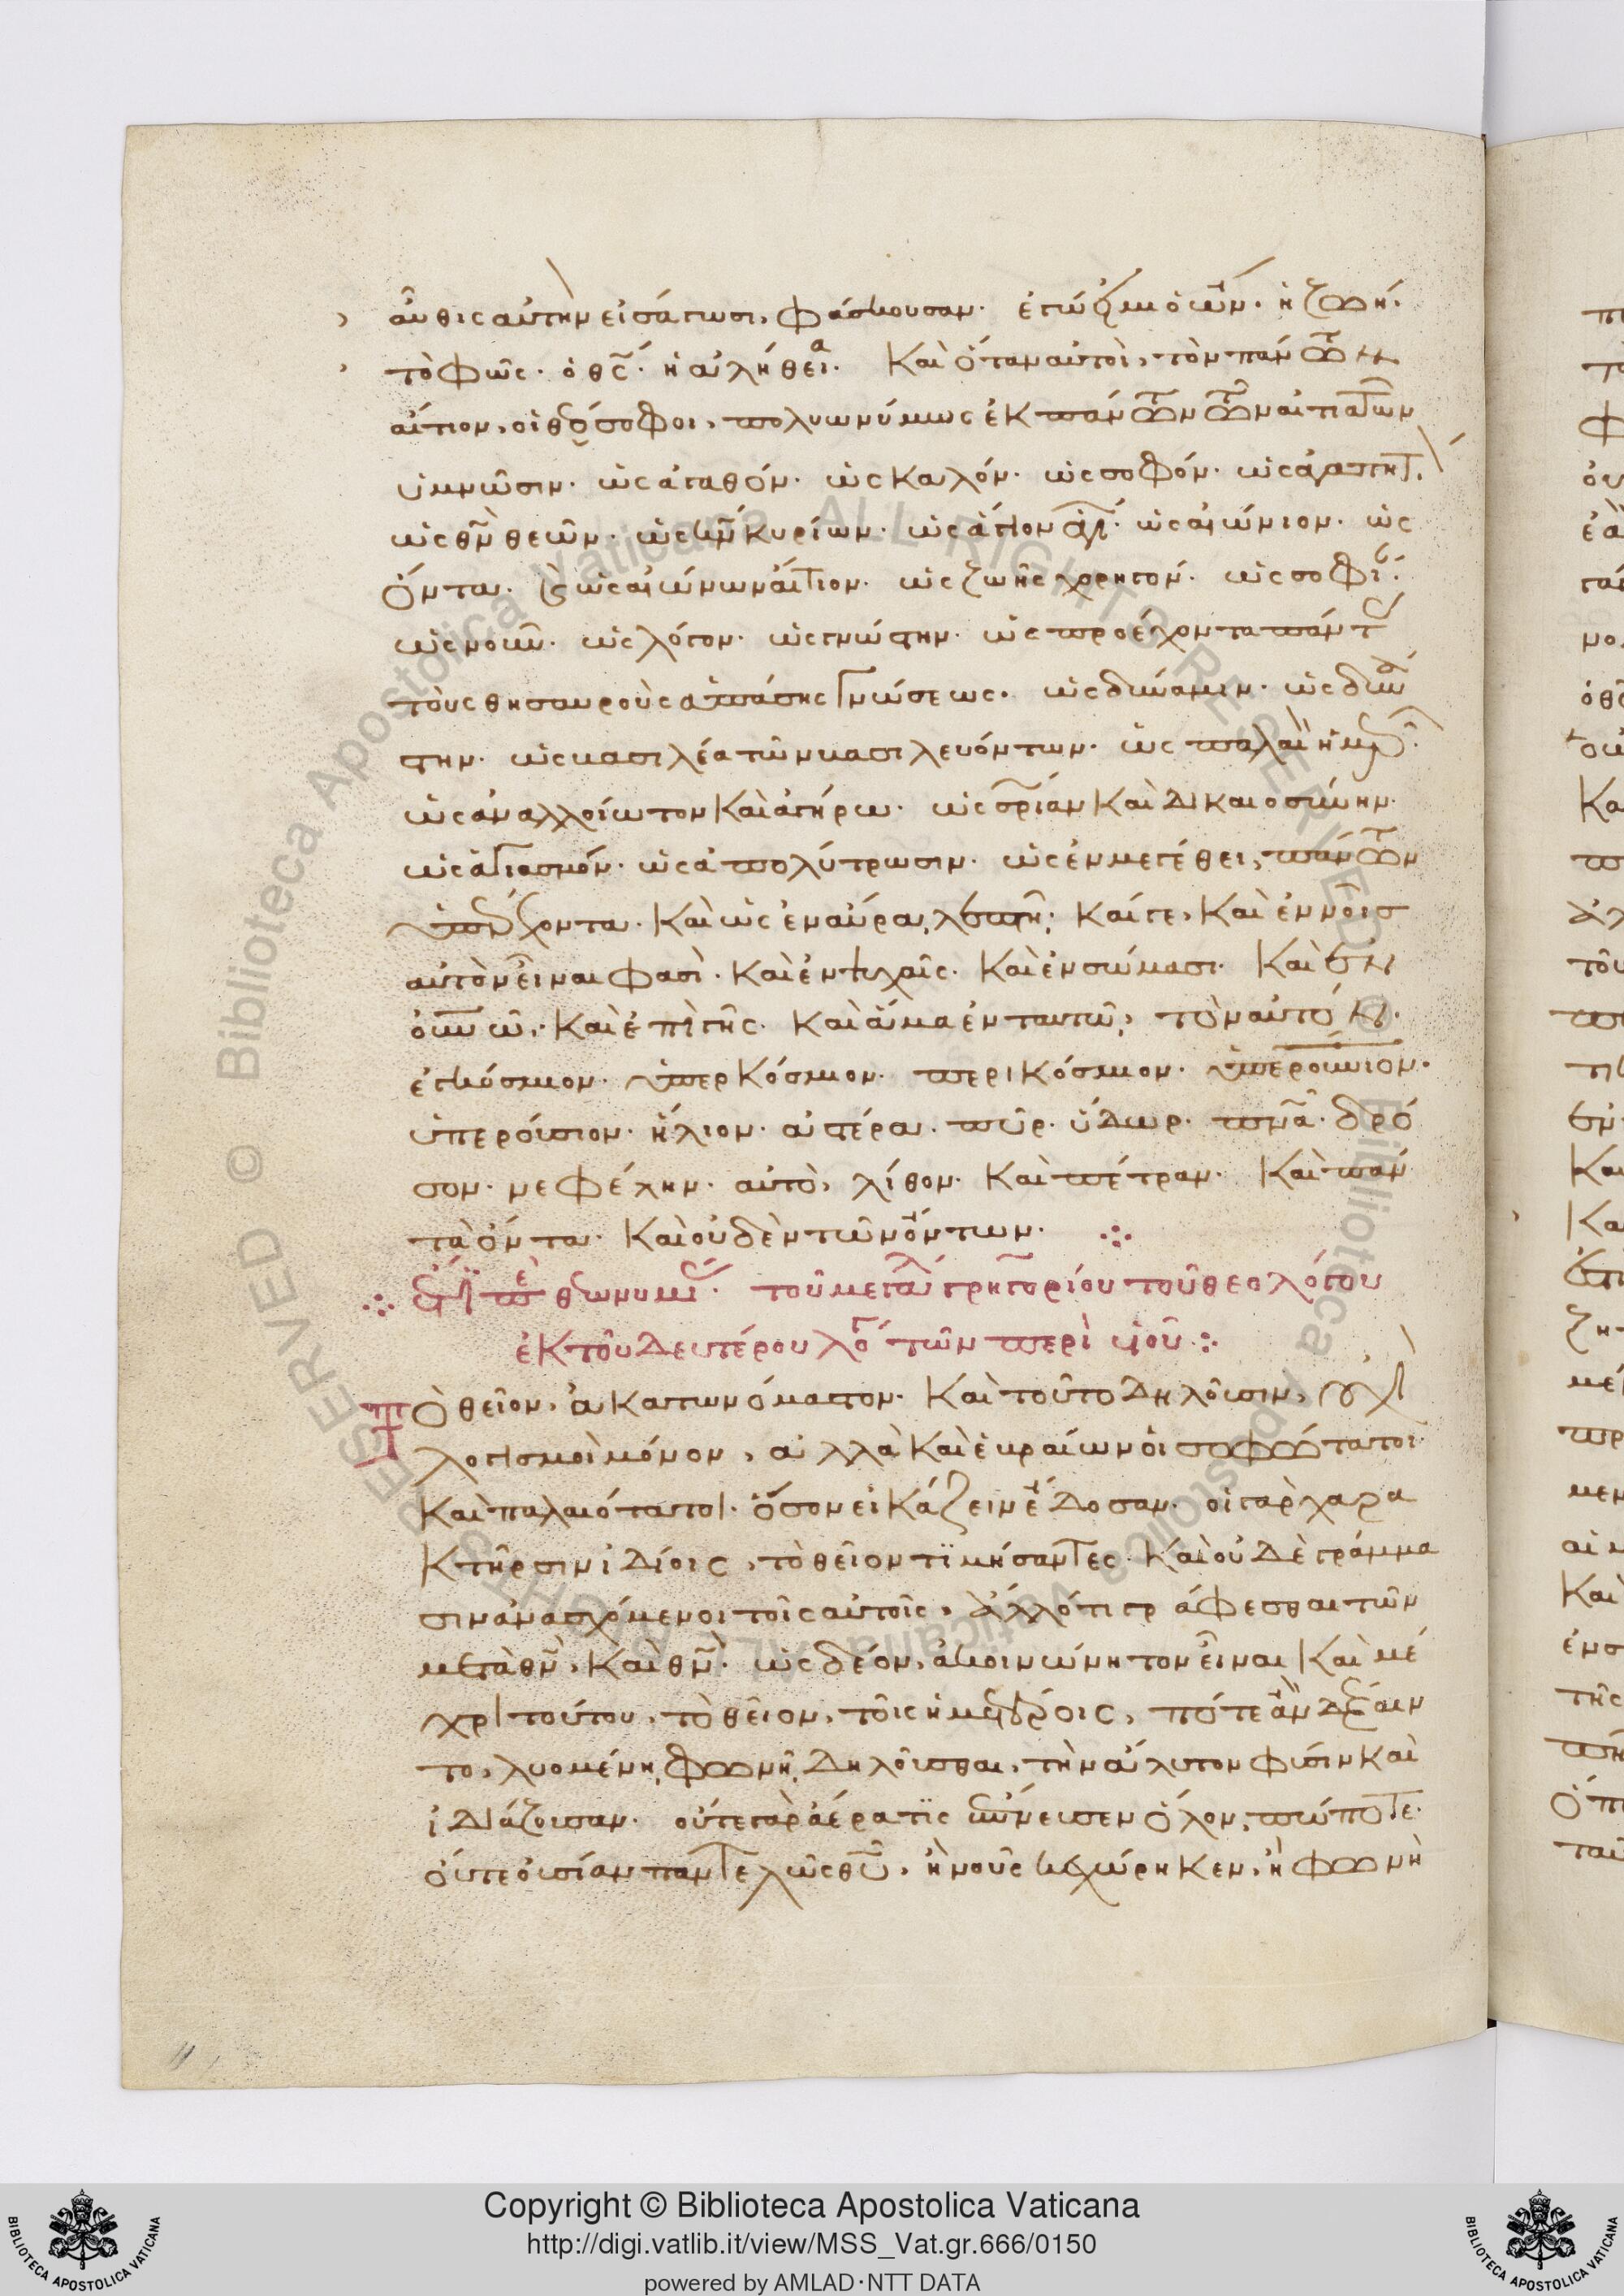 αὖθις αὐτὴν εἰσάγωσι, φάσκουσαν· ἐγώ εἰμι ὁ ὤν· ἡ ζωή·
τὸ φῶς· ὁ θς· ἡ ἀλήθεια· καὶ ὅταν αὐτοὶ, τὸν πάντων
αἴτιον, οἱ θεόσοφοι, πολυωνύμως ἐκ πάντων τῶν αἰτιατῶν
ὑμνῶσιν· ὡς ἀγαθόν· ὡς καλόν· ὡς σοφόν· ὡς ἀγαπητ
ὡς θν θεῶν· ὡς κν κυρίων· ὡς ἅγιον ἁγί· ὡς αἰώνιον· ὡς
ὄντα· καὶ ὡς αἰώνων αἴτιον· ὡς ζωῆς χορηγόν· ὡς σοφί·
ὡς νοῦν· ὡς λόγον· ὡς γνώστην· ὡς προέχοντα πάντ
τοὺς θησαυροὺς ἁπάσης γνώσεως· ὡς δύναμιν· ὡς δυνά
στην· ὡς βασιλέα τῶν βασιλευόντων· ὡς παλαιὸν ἡμερῶν·
ὡς ἀναλλοίωτον καὶ ἀγήρω· ὡς σριαν καὶ δικαιοσύνην·
ὡς ἁγιασμόν· ὡς ἀπολύτρωσιν· ὡς ἐν μεγέθει, πάντων
ὑπερέχοντα· καὶ ὡς ἐν αὔρᾳ λεπτῇ· καίγε, καὶ ἐν νόοις
αὐτὸν εἶναι φασὶ· καὶ ἐν ψυχαῖς· καὶ ἐν σώμασι· καὶ ἐν
οὐνω, καὶ ἐπὶ γῆς· καὶ ἅμα ἐν ταυτῷ, τὸν αὐτόν·
ἐγκόσμιον· ὑπερκόσμιον· περικόσμιον· ὑπερούνιον·
ὑπερούσιον· ἥλιον· ἀστέρα· πῦρ· ὕδωρ· πνα· δρό
σον· νεφέλην· αὐτὸ, λίθον· καὶ πέτραν· καὶ πάν
τα ὄντα· καὶ οὐδὲν τῶν ὄντων·
τοῦ μεγάλου γρηγορίου τοῦ θεολόγου
ἐκ τοῦ δευτέρου λόγ τῶν περὶ υἱοῦ:
Τὸ θεῖον, ἀκατωνόμαστον· καὶ τοῦτο δηλοῦσιν, οὐχ οἱ
λογισμοὶ μόνον, ἀλλὰ καὶ ἑβραίων οἱ σοφώτατοι
καὶ παλαιότατοι· ὅσον εἰκάζειν ἔδοσαν· οἱ γὰρ χαρα
κτῆρσιν ἰδίοις, τὸ θεῖον τιμήσαντες· καὶ οὐδὲ γράμμα
σιν ἀνασχόμενοι τοῖς αὐτοῖς, ἄλλό τι γράφεσθαι τῶν
μετὰ θν, καὶ θν· ὡς δέον, ἀκοινώνητον εἶναι καὶ μέ
χρι τούτου, τὸ θεῖον, τοῖς ἡμετέροις, πότε ἂν δέξαιν
το, λυομένῃ φωνῇ δηλοῦσθαι, τὴν ἄλυτον φύσιν καὶ
ἰδιάζουσαν· οὔτε γὰρ ἀέρα τις ἔπνευσεν ὅλον, πώποτε·
οὔτε οὐσίαν παντελῶς θυ, ἢ νοῦς κεχώρηκεν, ἢ φωνὴ
Copyright © Biblioteca Apostolica Vaticana
http://digi.vatlib.it/view/MSS_Vat.gr.666/0150
powered by AMLAD·NTT DATA